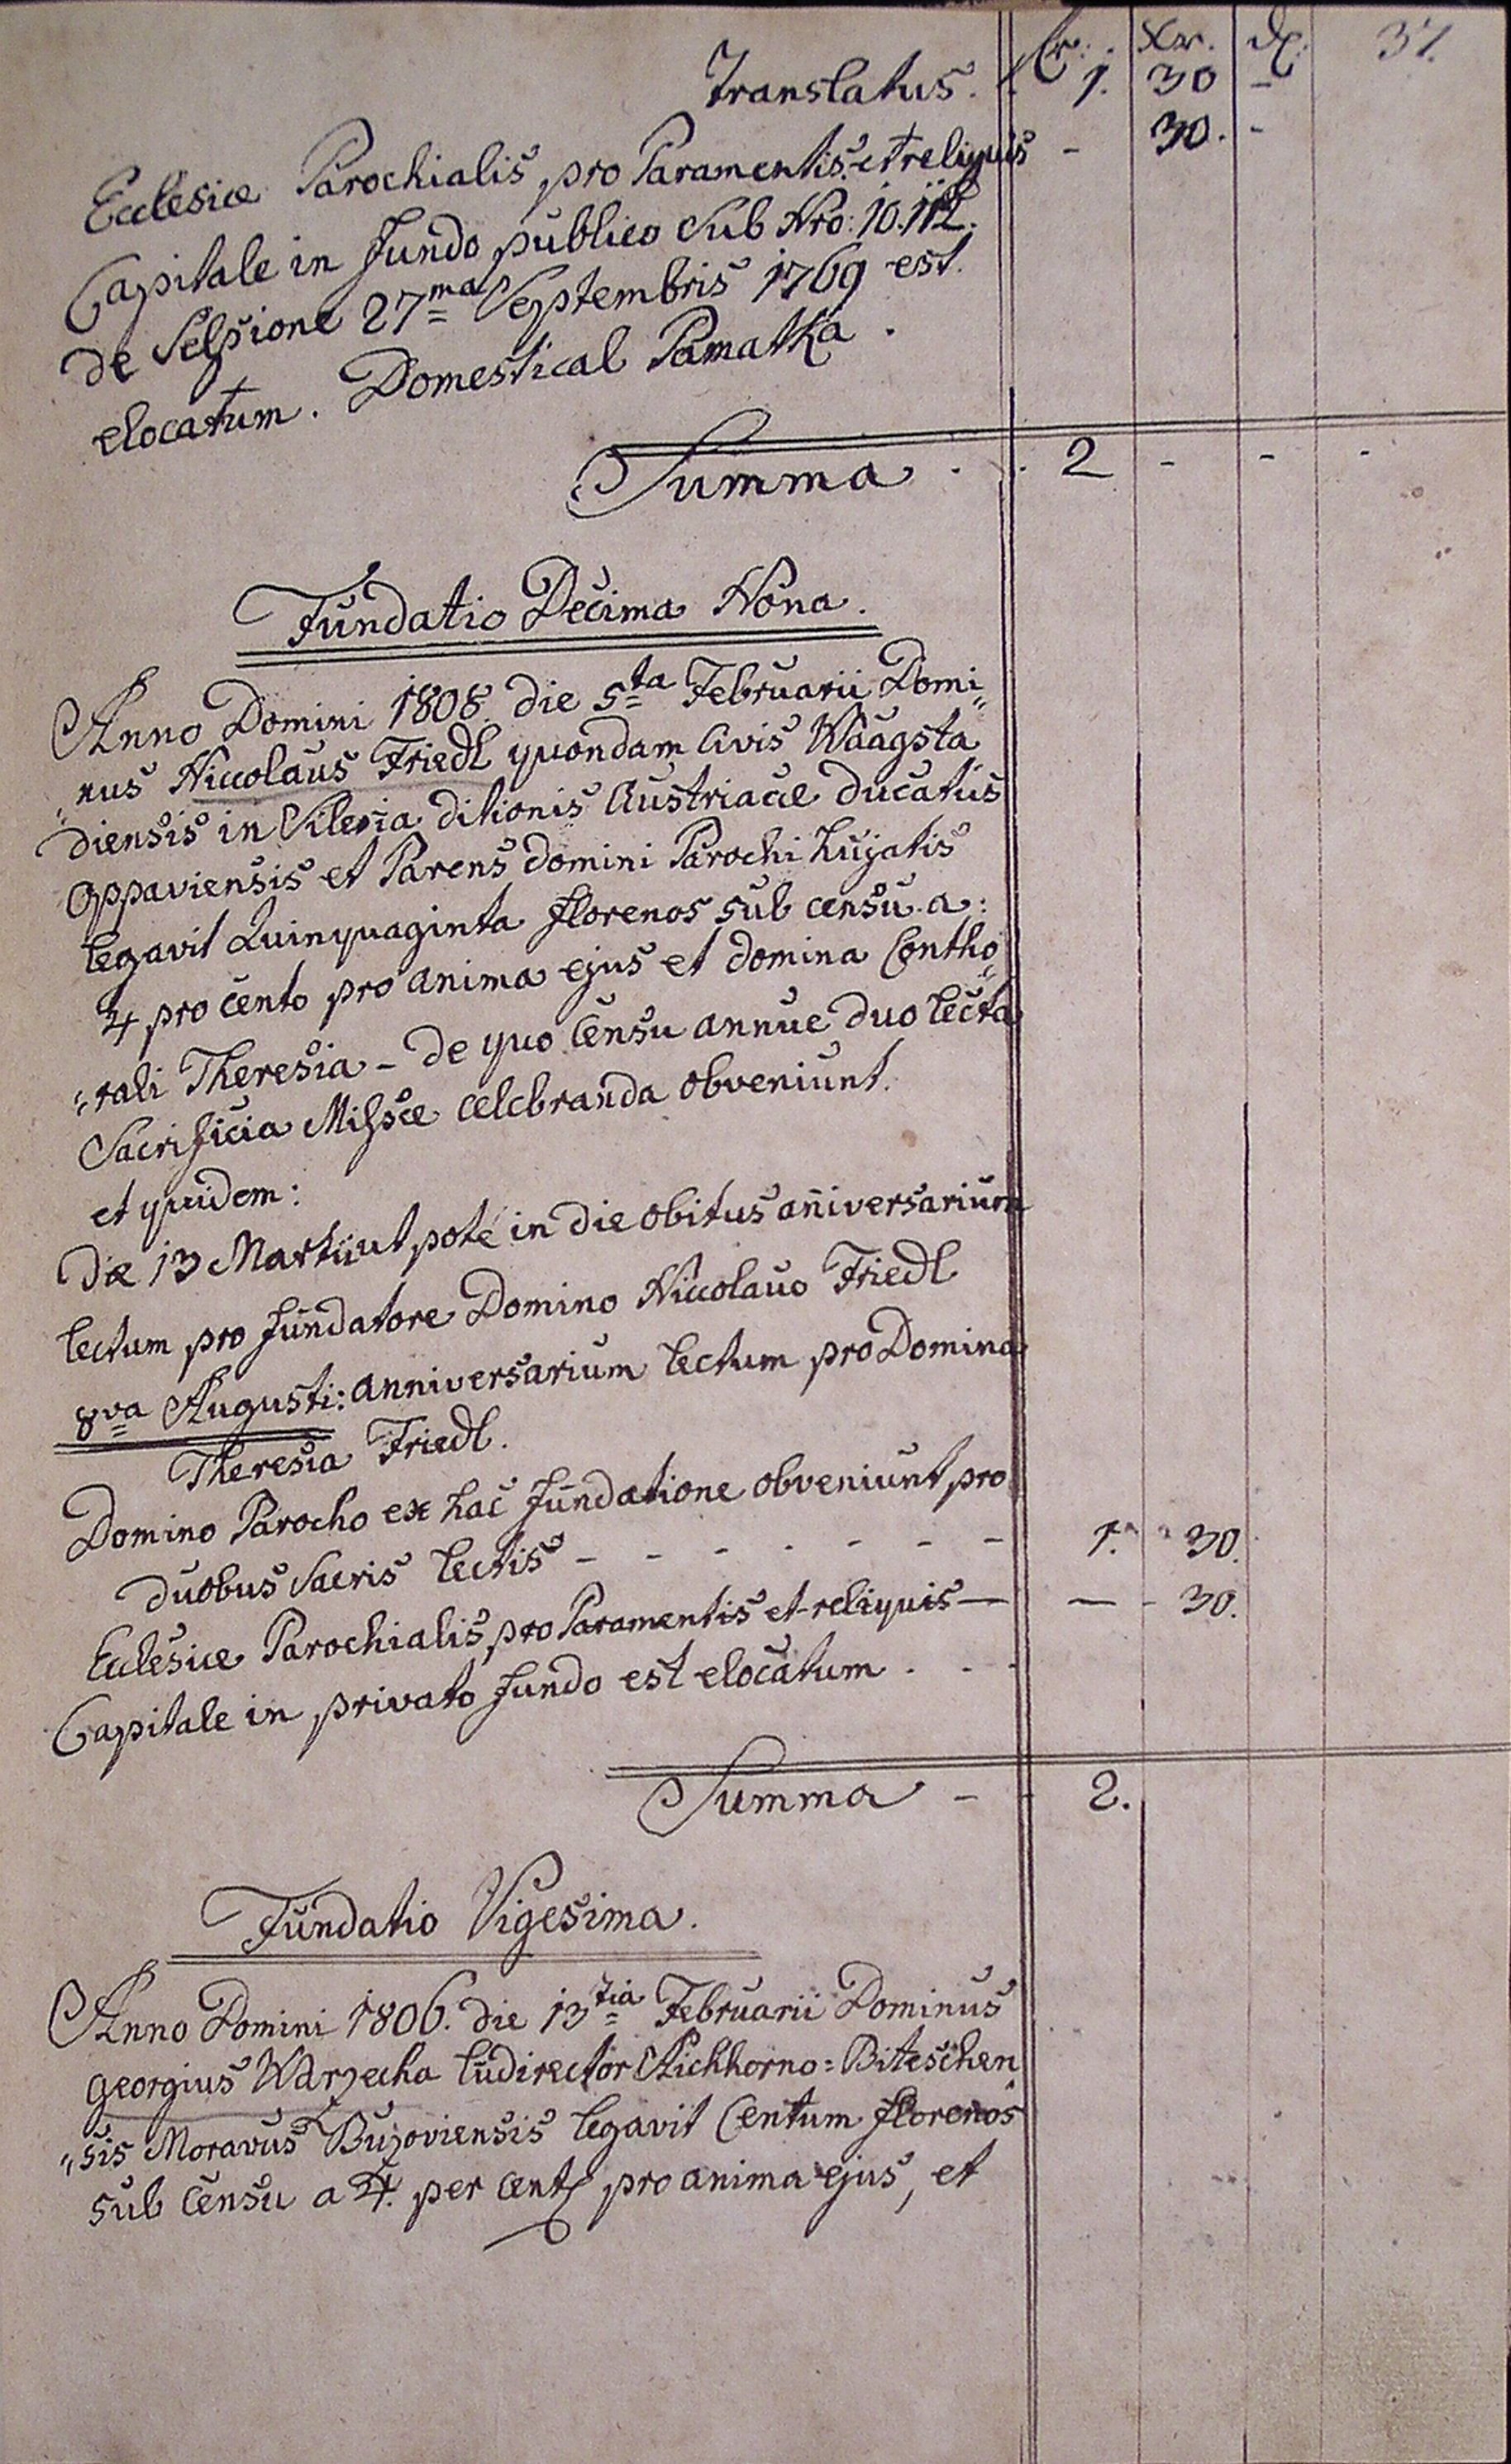 fr. Xr. d. 37.
Translatus. 1. 30 -
Eclesiæ Parochialis pro Paramentis et reliquis - 30. -
Capitale in fundo publico sub Nro: 10.112.
de Sessione 27ma Septembris 1769 est.
elocatum. Domestical Pamatka.
Summa . . 2 - - -
Fundatio Decima Nona.
Anno Domini 1808 die 5ta Februarii Domi„
„nus Niccolaus Friedl quondam Civis Waagsta
diensis in Silesia ditionis Austriacæ Ducatus
Oppaviensis et Parens domini Parochi hujatis
legavit Quinquaginta florenos sub censu a:
4 pro cento pro anima ejus et domina Contho„
„rali Theresia - de quo censu annue duo lecta
Sacrificia Missæ celebranda obveniunt.
et quidem:
Die 13 Martii utpote in die obitus añiversarium
lectum pro fundatore Domino Niccolauo Friedl
8va Augusti: anniversarium lectum pro Domina
Theresia Friedl.
Domino Parocho ex hac fundatione obveniunt pro
duobus Sacris lectis - - - - - - - 1. 30.
Eclesiæ Parochialis pro Paramentis et reliquis — — - 30.
Capitale in privato fundo est elocatum . . .
Summa - - 2.
Fundatio Vigesima.
Anno Domini 1806. die 13tia Februarii Dominus
Georgius Warzecha ludirector Aichhorno=Biteschen
„sis Moravus Bujoviensis legavit Centum florenos
sub censu a 4. per cent pro anima ejus, et